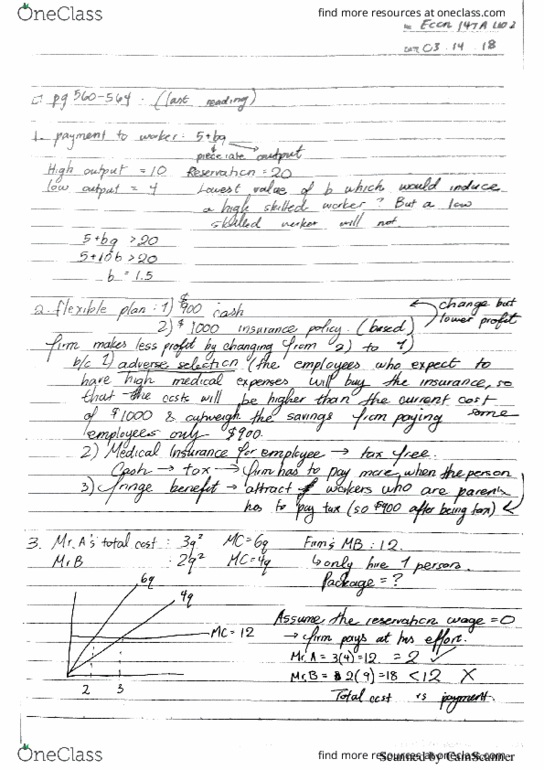 OneClass
find more resources at oneclass.com
No. Econ 147A Lec 2
DATE 03 . 14 . 18
pg 560-564 . (last reading)
1. payment to worker : 5+bq
piece rate output
High output = 10 Reservation = 20
low output = 4 Lowest value of b which would induce
a high skilled worker ? But a low
skilled worker will not.
5+bq > 20
5+10b > 20
b = 1.5
2. flexible plan : 1) $900 cash
change but
lower profit
2) $1000 insurance policy. (based)
firm makes less profit by changing from 2) to 1)
b/c 1) adverse selection (the employees who expect to
have high medical expenses will buy the insurance, so
that the costs will be higher than the current cost
of $1000 & outweigh the savings firm paying some
employees only $900.
2) Medical Insurance for employee → tax free.
Cash → tax → firm has to pay more when the person
3) fringe benefit → attract workers who are parents
has to pay tax (so $900 after being tax)
3. Mr. A's total cost : 3q² MC=6q Firm's MB : 12.
Mr. B : 2q² MC=4q ↳ only hire 1 person.
Package = ?
6q
4q
MC = 12
2 3
Assume the reservation wage = 0
→ firm pays at his effort.
Mr. A = 3(4) = 12 = 2 ✓
Mr. B = 2(9) = 18 < 12 X
Total cost vs payment.
OneClass
find more resources at oneclass.com
Scanned by CamScanner